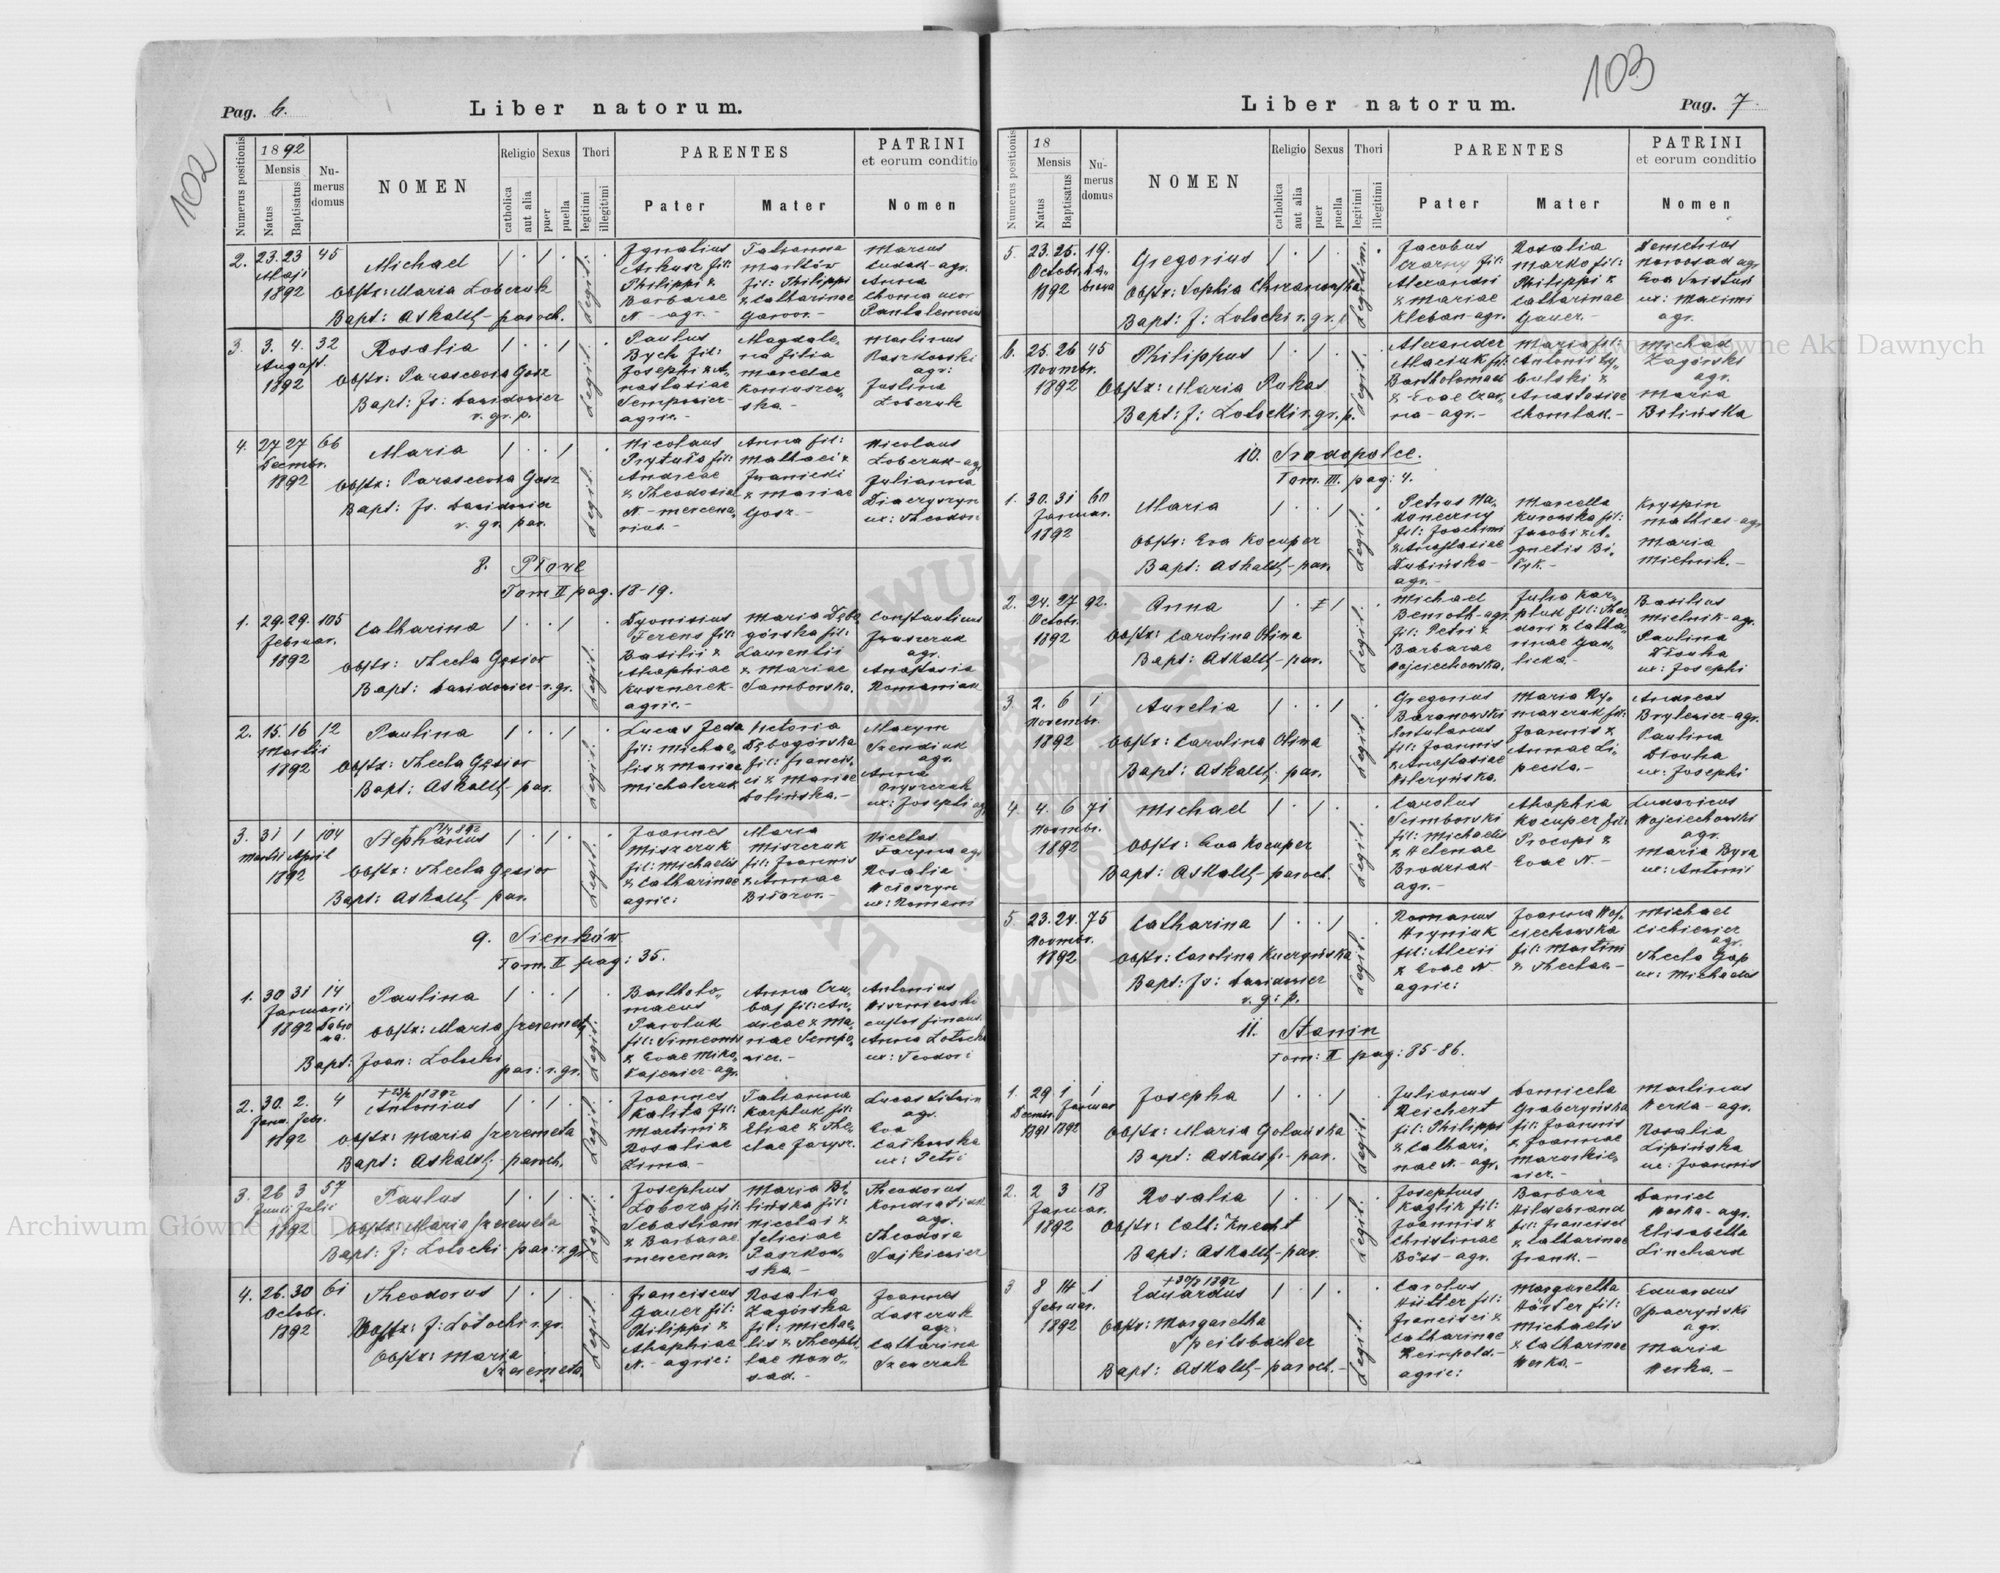 102
Pag. 6.
Liber natorum.
Numerus positionis
1892
Mensis
Natus
Baptisatus
Numerus domus
NOMEN
Religio
catholica
aut alia
Sexus
puer
puella
Thori
legitimi
illegitimi
PARENTES
Pater
Mater
PATRINI
et eorum conditio
Nomen
2. 23. 23 45
Maji
1892
Michael
Obstx: Maria Loberuk
Bapt: Askaldt paroch.
Legit:
Ignatius
Philippi &
Barbarae
N. - agr. -
Tatianna
fil: Philippi
& Catharinae
Marcus
Anna
3. 3. 4. 32
August.
1892
Rosalia
Obstx: Parascevia Gosz
Bapt: Js: Davidovicz
r. gr. p.
Legit.
Paulus
Bych fil:
Josephi & A-
nastasiae
Semporier-
agric. -
Magdale-
na filia
Marcelae
Koniuszew-
ska. -
Martinus
Paszkowski
agr:
Justina
Loberuk
4. 27 27 66
Decembr.
1892
Maria
Obstx: Parascevia Gosz
Bapt: Js. Davidovicz
r. gr. par.
Legit.
Nicolaus
Prytuła fil:
Andreae
& Theodosia
N. - mercena-
rius. -
Anna fil:
Matthaei &
& Mariae
Gosz. -
Nicolaus
Loberuk - agr
Julianna
ux: Theodori
8. Płowe
Tom II pag. 18-19.
1. 29. 29. 105
Februar.
1892
Catharina
Obstx: Thecla Gęsior
Bapt: Davidovicz r. gr.
Legit.
Dyonisius
Terens fil:
Basilii &
Ahaphiae
Kusznerek-
agric. -
Maria Dębo-
górska fil:
Laurentii
& Mariae
Samborska.
Constantinus
agr.
Anastasia
Romaniuk
2. 15. 16 12
Martii
1892
Paulina
Obstx: Thecla Gęsior
Bapt: Askaldt par.
Legit.
Lucas Jeda
fil: Michae-
lis & Mariae
Michalczuk
Victoria
Dębogórska
fil: Francis-
ci & Mariae
Dolińska. -
Maxym
agr.
Anna
ux: Josephi agr
3. 31 1 104
Martii April
1892
Stephanus
Obstx: Thecla Gęsior
Bapt: Askaldt par.
Legit.
Joannes
Miszczuk
fil: Michaelis
& Catharinae
agric:
Maria
Miszczuk
fil: Joannis
& Annae
Nicetas
Rosalia
ux: Romani
9. Sieńków
Tom. II pag: 35.
1. 30 31 14
Januarii
1892
Paulina
Obstx: Maria Szeremeta
Bapt: Joan: Lotocki par: r. gr.
Legit:
Bartholo-
maeus
Pawluk
fil: Simeonis
& Evae Miko-
łajewicz agr.
Anna Cu-
bas fil: An-
dreae & Ma-
riae Sempo-
rier. -
Antonius
Anna Lotocka
ux: Teodori
2. 30. 2. 4
Janu. Febr.
1892
Antonius
Obstx: Maria Szeremeta
Bapt: Askaldt paroch.
Legit.
Joannes
Kalita fil:
Martini &
Rosaliae
Zima -
Tatianna
Karpluk fil:
Eliae & The-
clae
Lucas
agr.
Eva
ux: Petri
3. 26 3 57
Junii Julii
1892
Paulus
Obstx: Maria Szeremeta
Bapt: J: Lotocki par: r. gr.
Legit.
Josephus
Lobora fil:
Sebastiani
& Barbarae
mercenar.
Maria Bi-
lińska fil:
Nicolai &
Feliciae
Paszkow-
ska. -
Theodorus
Kondratiuk
agr.
Theodora
Sajkiewicz
4. 26. 30 61
Octobr.
1892
Theodorus
J: Lotocki r. gr.
Obstx: Maria
Szeremeta.
Legit.
Franciscus
Gauer fil:
Philippi &
Ahaphiae
N. - agric:
Rosalia
Zagórska
fil: Michae-
lis & Theophi-
lae Nowo-
sad. -
Joannes
Laszczuk
agr.
Catharina
Szewczuk
103
Liber natorum.
Pag. 7.
Numerus positionis
18
Mensis
Natus
Baptisatus
Numerus domus
NOMEN
Religio
catholica
aut alia
Sexus
puer
puella
Thori
legitimi
illegitimi
PARENTES
Pater
Mater
PATRINI
et eorum conditio
Nomen
5. 23. 25. 19.
Octobr.
1892
Gregorius
Obstx: Sophia Chrzanowska
Bapt: J: Lotocki r. gr.
Legitim.
Jacobus
Czarny fil:
Alexandri
& Mariae
Kleban - agr.
Rosalia
Marko fil:
Philippi &
Catharinae
Gauer. -
Demetrius
Nowosad agr
ux: Maximi
agr.
6. 25. 26 45
Novmbr.
1892
Philippus
Obstx: Maria Pukas
Bapt: J: Lotocki r. gr. p.
Legit.
Alexander
Maciuk fil:
Bartholomaei
& Evae Czar-
na - agr. -
Maria fil:
Antonii Cy-
bulski &
Anastasiae
Chomlak. -
Michael
Zagórski
agr.
Maria
Bilińska
10. Srodopolce.
Tom. III. pag: 4.
1. 30. 31 60
Januar.
1892
Maria
Obstx: Eva Kocuper
Bapt: Askaldt par.
Legit.
Petrus Na-
konerny
fil: Joachimi
& Anastasiae
Dubińska -
agr. -
Marcella
Kurowska fil:
Jacobi & A-
gnetis Bi-
łyk. -
Kryspin
Mathias - agr
Maria
Michnik. -
2. 24. 27 92.
Octobr.
1892
Anna
Obstx: Carolina Olma
Bapt: Askaldt par.
Legit.
Michael
Bemoth - agr.
fil: Petri &
Barbarae
Wojciechowska.
Julia Kar-
pluk fil: Theo-
dori & Catha-
rinae Gau-
licka. -
Basilius
Mielnik - agr.
Paulina
Dłouha
ux: Josephi
3. 2. 6 1
Novembr.
1892
Aurelia
Obstx: Carolina Olma
Bapt: Askaldt par.
Legit.
Gregorius
Baranowski
fil: Joannis
& Anastasiae
Wilczyńska.
Maria Ry-
marczuk fil:
Joannis &
Annae Li-
pecka. -
Andreas
Brylewicz - agr.
Paulina
Dłouha
ux: Josephi
4. 4. 6 71
Novmbr.
1892
Michael
Obstx: Eva Kocuper
Bapt: Askaldt paroch.
Legit.
Carolus
Semborski
fil: Michaelis
& Helenae
Brodziak -
agr. -
Ahaphia
Kocuper fil:
Procopi &
Evae N. -
Ludovicus
Wojciechowski
agr.
Maria Byra
ux: Antonii
5. 23. 24. 75
Novmbr.
1892
Catharina
Obstx: Carolina Kuczyńska
Bapt: Js: Davidovicz
r. g: p.
Legit.
Romanus
Hryniuk
fil: Alexii
& Evae N. -
agric:
Joanna Woj-
ciechowska
fil: Martini
& Theclae -
Michael
Cichiewicz
agr.
Thecla Gap
ux: Michaelis
11. Stanin
Tom: II pag: 85-86.
1. 29 1 1
Decmbr. Januar
1891 1892
Josepha
Obstx: Maria Golańska
Bapt: Askaldt par.
Legit.
Julianus
Reichert
fil: Philippi
& Cathari-
nae N. - agr.
Domicela
Grabczyńska
fil: Joannis
& Joannae
Maruszkie-
wicz. -
Martinus
Werka - agr.
Rosalia
Lipińska
ux: Joannis
2. 2 3 18
Januar.
1892
Rosalia
Obstx: Cath: Knecht
Bapt: Askaldt par.
Legit.
Josephus
Kaglik fil:
Joannis &
Christinae
Böss - agr.
Barbara
Hildebrand
fil: Francisci
& Catharinae
Frank. -
Daniel
Werka - agr.
Elisabetha
Linchard
3 8 14 1
Februar.
1892
Eduardus
Obstx: Margaretha
Speilsbacher
Bapt: Askaldt paroch. -
Legit.
Carolus
Hütter fil:
Francisci &
Catharinae
Reinpold. -
agric:
Margaretha
Hösler fil:
Michaelis
& Catharinae
Werka. -
Eduardus
Spaczyński
agr.
Maria
Werka. -
Archiwum Główne Akt Dawnych
Archiwum Główne Akt Dawnych